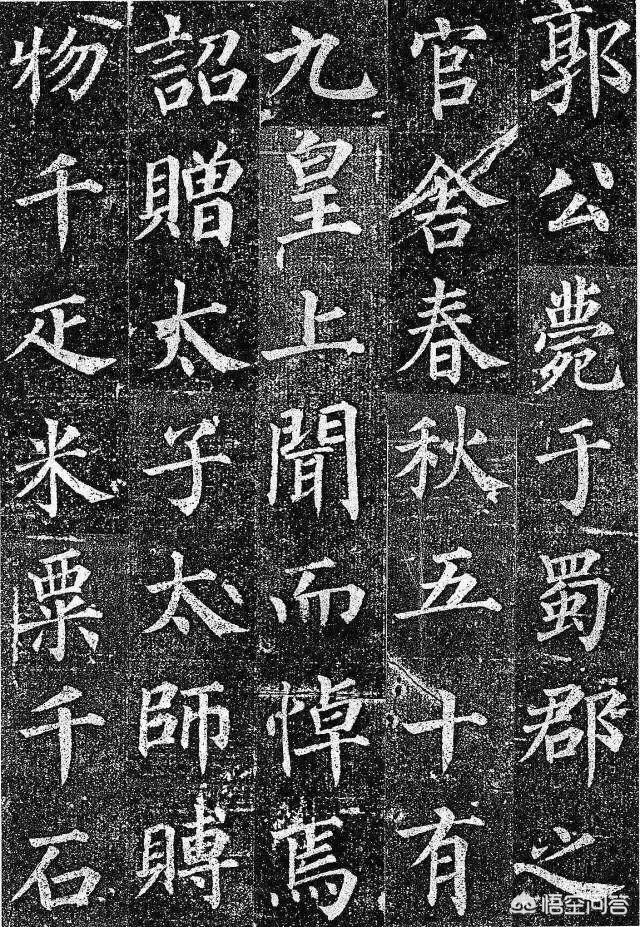 郭公薨于蜀郡之
官舍春秋五十有
九皇上聞而悼焉
詔贈太子太師賻
物千疋米粟千石
悟空问答